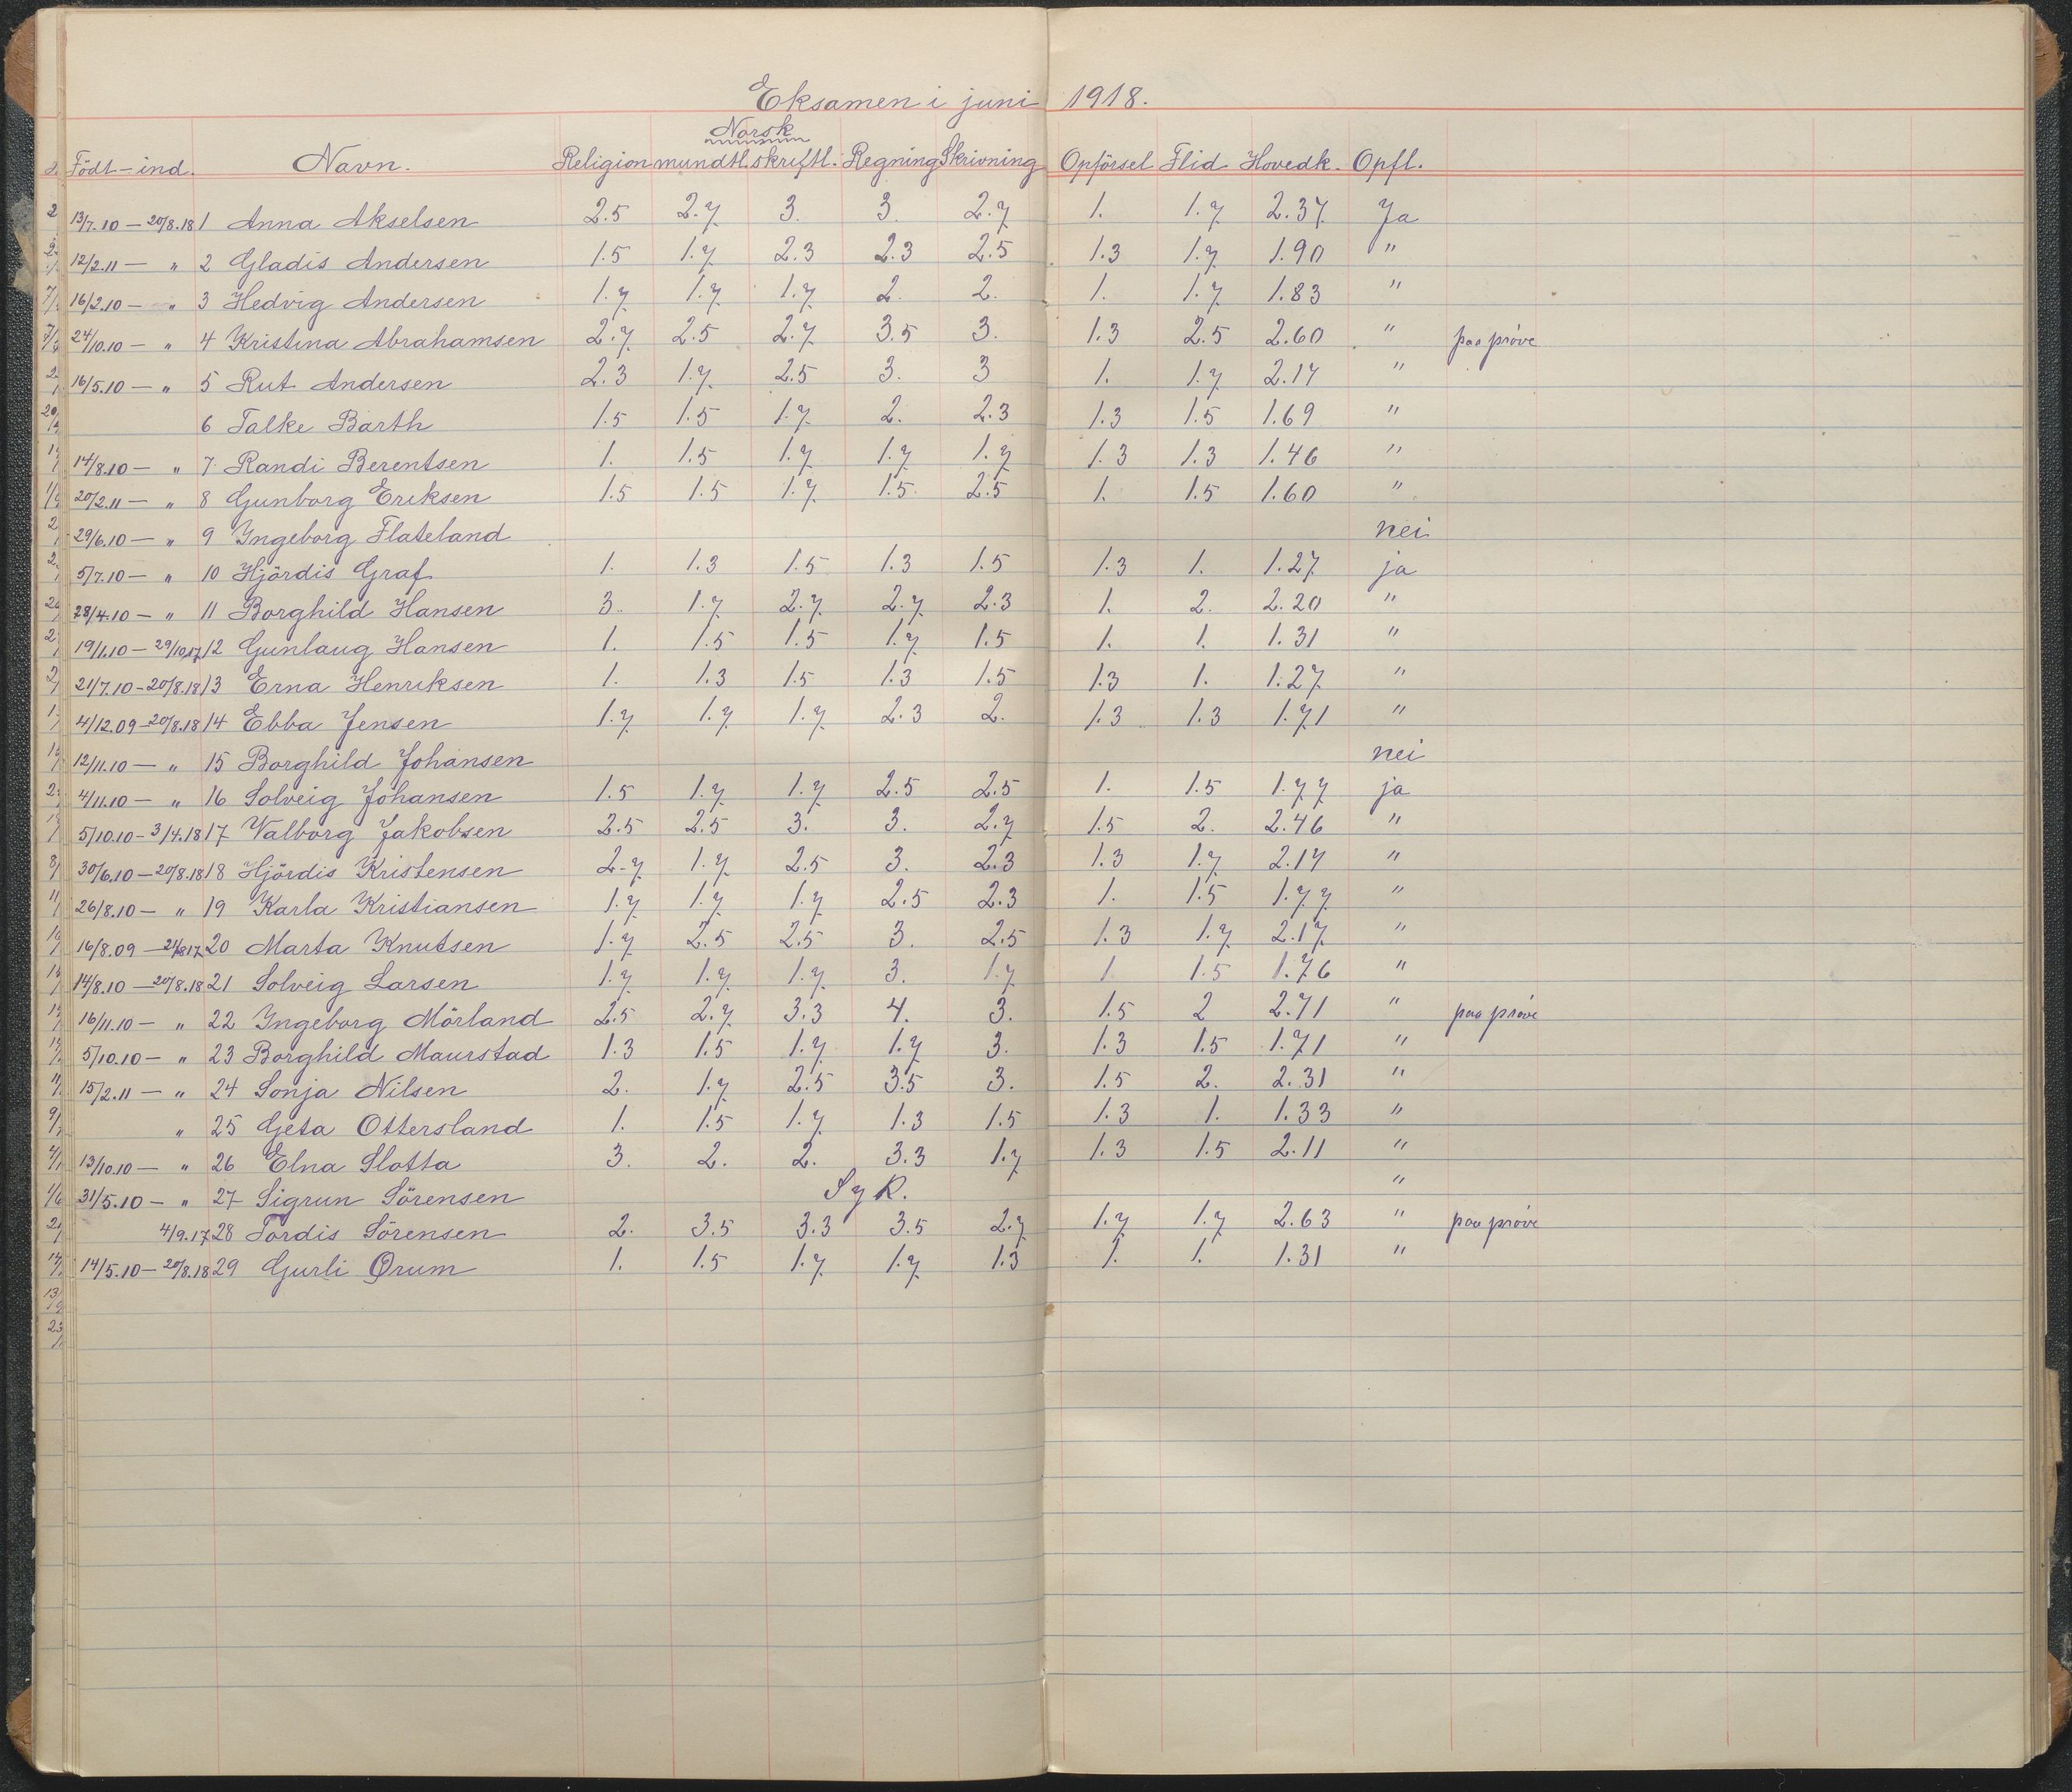 Eksamen i juni 1918.
Norsk
Födt - ind. Navn. Religion mundtl. skriftl. Regning Skrivning Opförsel Flid Hovedk. Opfl.
13/7.10 - 20/8.18 1 Anna Akselsen 2.5 2.7 3. 3. 2.7 1. 1.7 2.37 Ja
12/2.11 - " 2 Gladis Andersen 1.5 1.7 2.3 2.3 2.5 1.3 1.7 1.90 "
16/2.10 - " 3 Hedvig Andersen 1.7 1.7 1.7 2. 2. 1. 1.7 1.83 "
24/10.10 - " 4 Kristina Abrahamsen 2.7 2.5 2.7 3.5 3. 1.3 2.5 2.60 " paa pröve
16/5.10 - " 5 Rut Andersen 2.3 1.7 2.5 3. 3 1. 1.7 2.17 "
6 Talke Barth 1.5 1.5 1.7 2. 2.3 1.3 1.5 1.69 "
14/8.10 - " 7 Randi Berentsen 1. 1.5 1.7 1.7 1.7 1.3 1.3 1.46 "
20/2.11 - " 8 Gunborg Eriksen 1.5 1.5 1.7 1.5 2.5 1. 1.5 1.60 "
29/6.10 - " 9 Ingeborg Flateland nei
5/7.10 - " 10 Hjördis Graf 1. 1.3 1.5 1.3 1.5 1.3 1. 1.27 ja
28/4.10 - " 11 Borghild Hansen 3. 1.7 2.7 2.7 2.3 1. 2. 2.20 "
19/1.10 - 29/10.17 12 Gunlaug Hansen 1. 1.5 1.5 1.7 1.5 1. 1. 1.31 "
21/7.10 - 20/8.18 13 Erna Henriksen 1. 1.3 1.5 1.3 1.5 1.3 1. 1.27 "
4/12.09 - 20/8.18 14 Ebba Jensen 1.7 1.7 1.7 2.3 2. 1.3 1.3 1.71 "
12/11.10 - " 15 Borghild Johansen nei
4/11.10 - " 16 Solveig Johansen 1.5 1.7 1.7 2.5 2.5 1. 1.5 1.77 ja
5/10.10 - 3/4.18 17 Valborg Jakobsen 2.5 2.5 3. 3. 2.7 1.5 2. 2.46 "
30/6.10 - 20/8.18 18 Hjördis Kristensen 2.7 1.7 2.5 3. 2.3 1.3 1.7 2.17 "
26/8.10 - " 19 Karla Kristiansen 1.7 1.7 1.7 2.5 2.3 1. 1.5 1.77 "
16/8.09 - 21/8.17 20 Marta Knutsen 1.7 2.5 2.5 3. 2.5 1.3 1.7 2.17 "
14/8.10 - 20/8.18 21 Solveig Larsen 1.7 1.7 1.7 3. 1.7 1 1.5 1.76 "
16/11.10 - " 22 Ingeborg Mörland 2.5 2.7 3.3 4. 3. 1.5 2 2.71 " paa pröve
5/10.10 - " 23 Borghild Maurstad 1.3 1.5 1.7 1.7 3. 1.3 1.5 1.71 "
15/2.11 - " 24 Sonja Nilsen 2. 1.7 2.5 3.5 3. 1.5 2. 2.31 "
" 25 Geta Ottersland 1. 1.5 1.7 1.3 1.5 1.3 1. 1.33 "
13/10.10 - " 26 Elna Slotta 3. 2. 2. 3.3 1.7 1.3 1.5 2.11 "
31/5.10 - " 27 Sigrun Sörensen Syk. "
4/9.17 28 Tordis Sörensen 2. 3.5 3.3 3.5 2.7 1.7 1.7 2.63 " paa pröve
14/5.10 - 20/8.18 29 Gurli Ørum 1. 1.5 1.7 1.7 1.3 1. 1. 1.31 "